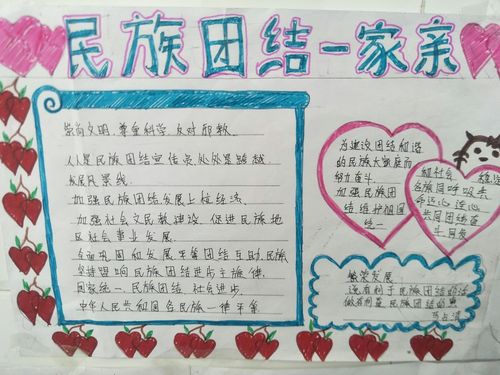 民族团结一家亲
崇尚文明、尊重科学、反对邪教.
人人是民族团结宣传员处处是跨越
发展风景线.
加强民族团结发展上
加强社会文民教建设 促进民族地
区社会事业发展.
全面巩固和发展平等团结互助民族
坚持唱响民族团结进步主旋律.
国家统一、民族团结、社会进步.
中华人民共和国各民族一律平等
为建设团结和谐
的民族大家庭而
努力奋斗.
加强民族团
结维护祖国
统一
和社会
各族同呼吸共
命运心连心
共同团结奋
斗
繁荣发展
说有利于民族团结的话
做有利于民族团结的事